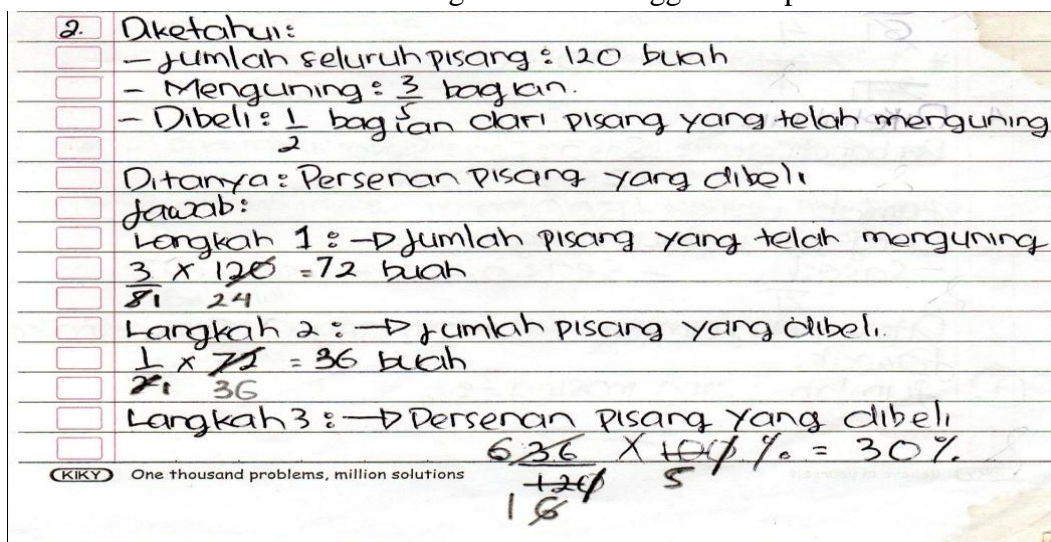 2. Diketahui:
- Jumlah seluruh pisang : 120 buah
- Menguning : 3/5 bagian.
- Dibeli : 1/2 bagian dari pisang yang telah menguning
Ditanya : Persenan pisang yang dibeli
Jawab :
Langkah 1 : → Jumlah pisang yang telah menguning
3/5 1 x 120 24 = 72 buah
Langkah 2 : → Jumlah pisang yang dibeli.
1/2 1 x 72 36 = 36 buah
Langkah 3 : → Persenan pisang yang dibeli
6 36 / 120 6 1 x 100 5 % = 30%.
KIKY One thousand problems, million solutions